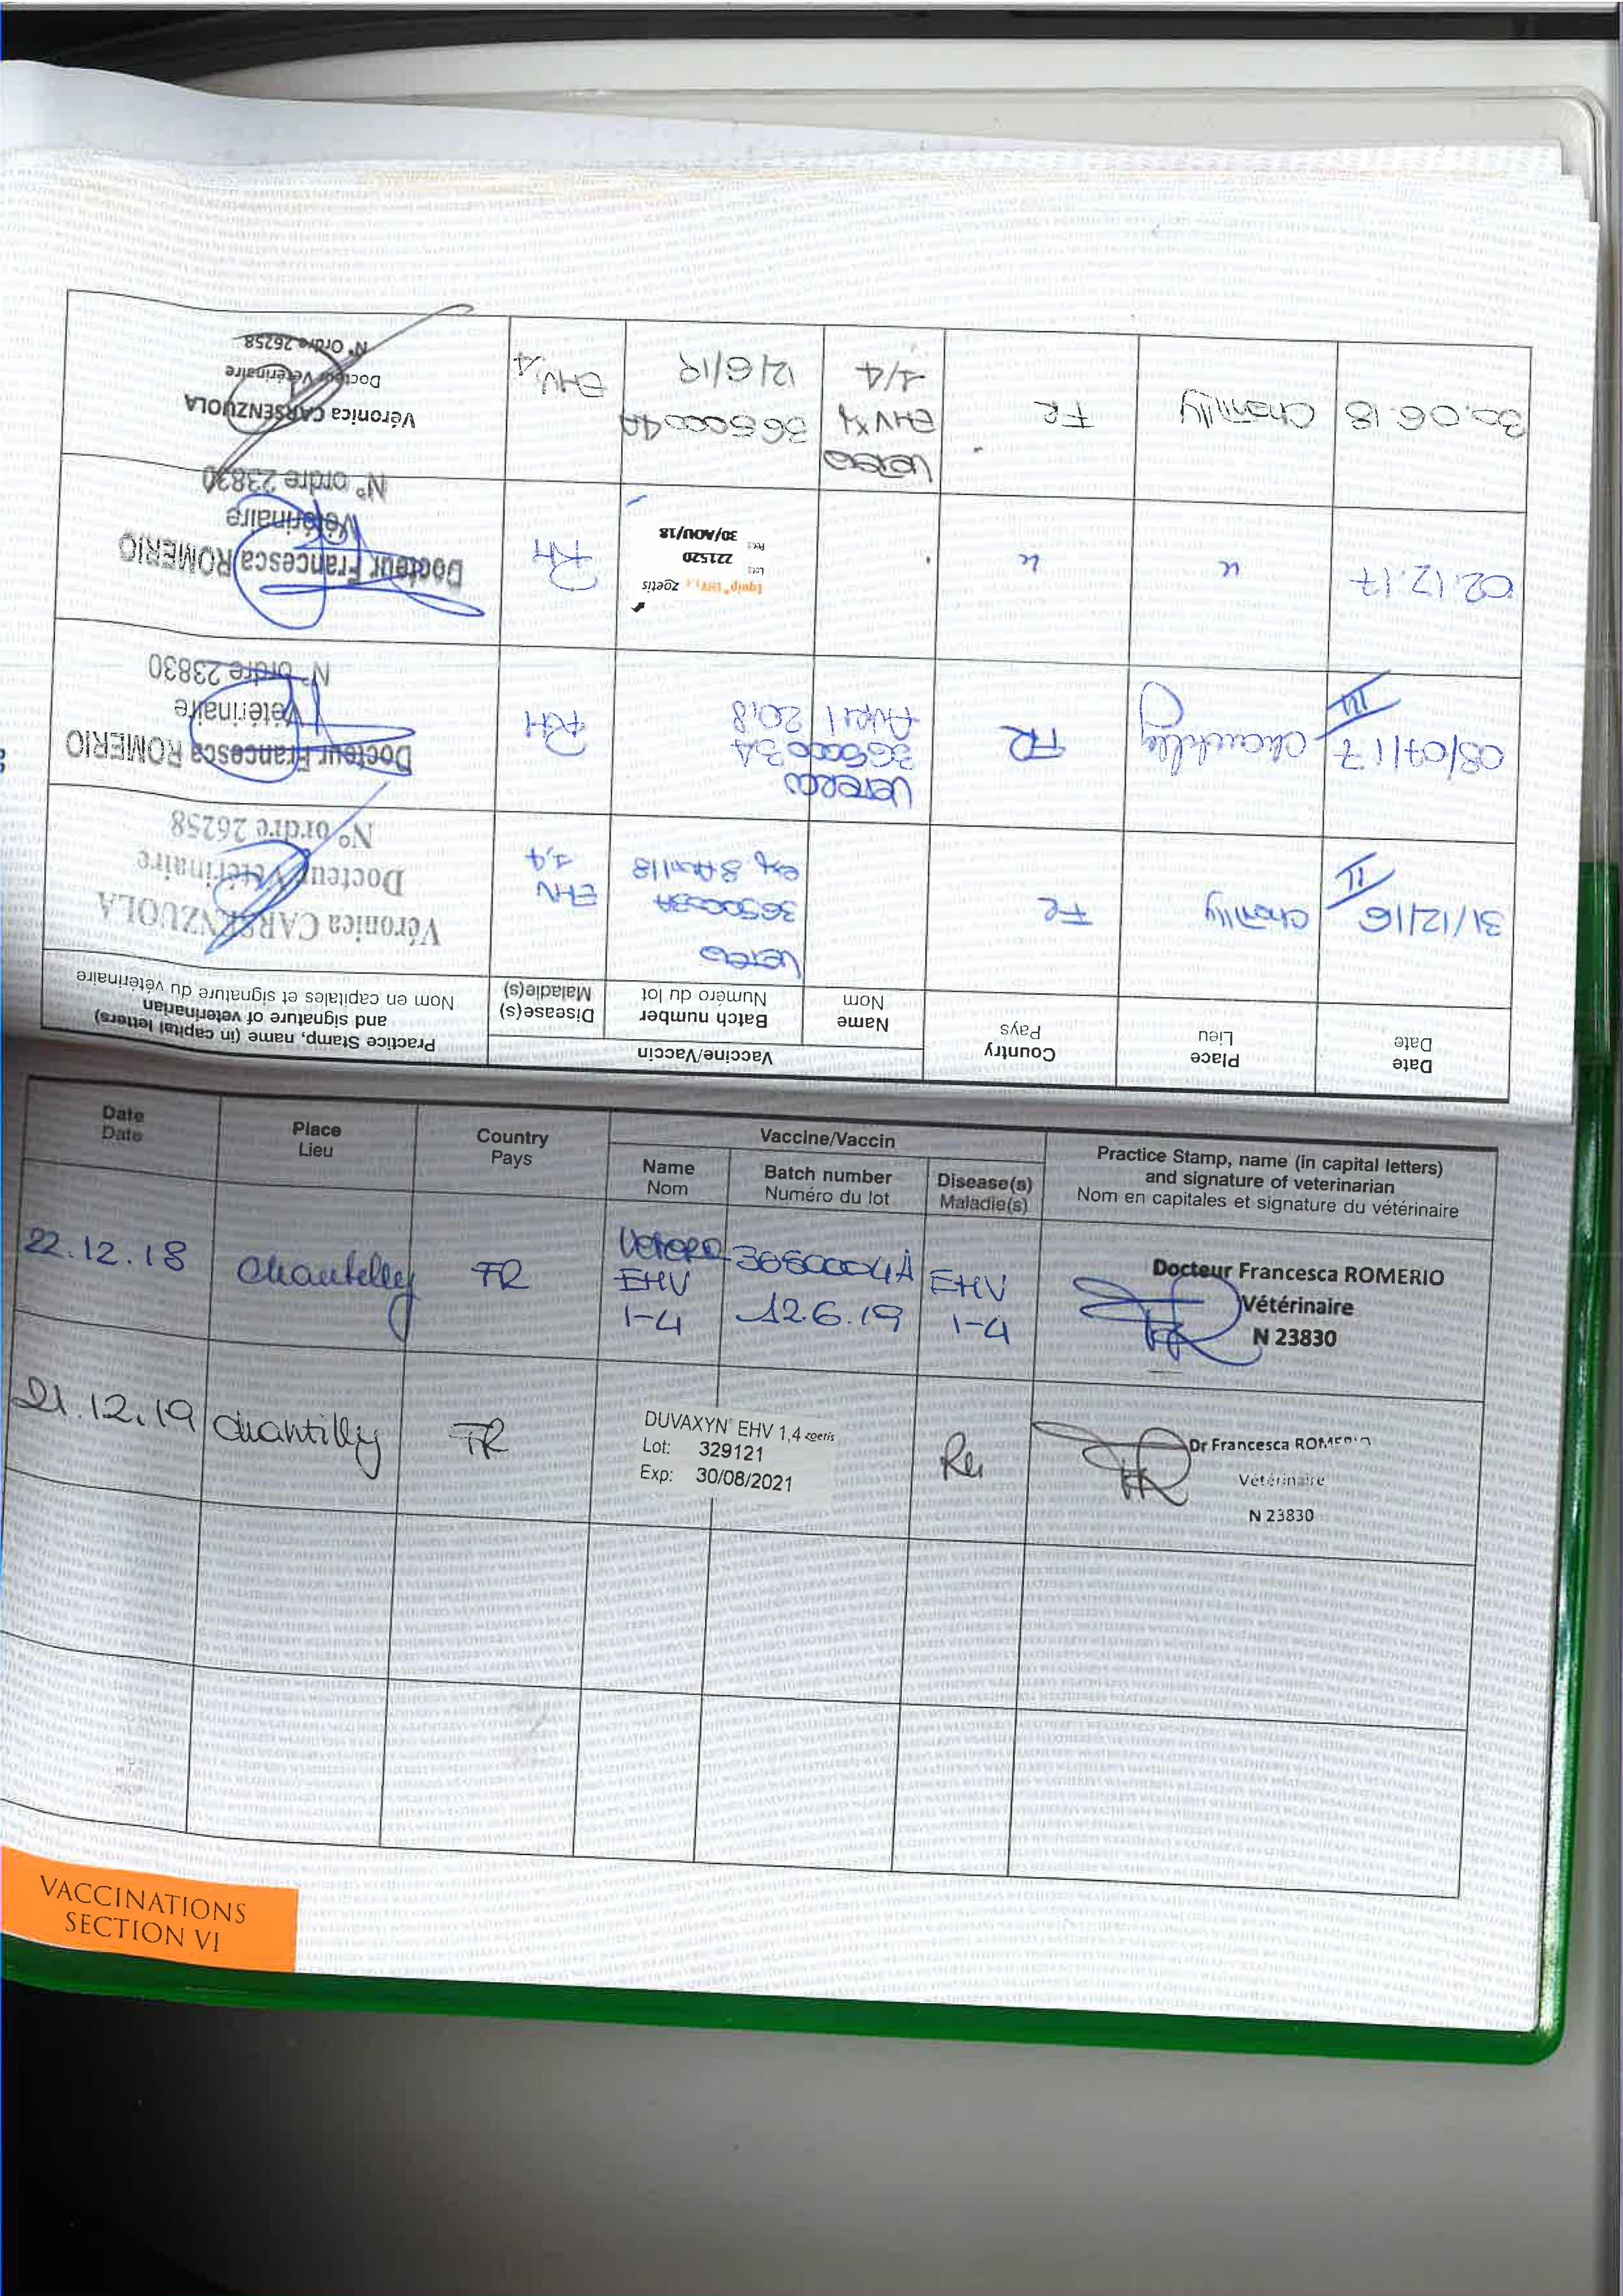 Date
Date
Place
Lieu
Country
Pays
Vaccine/Vaccin
Name
Nom
Batch number
Numéro du lot
Disease(s)
Maladie(s)
Practice Stamp, name (in capital letters)
and signature of veterinarian
Nom en capitales et signature du vétérinaire
31/12/16
II
Chantilly
FR
3650003A
exp 8 Avril 18
EHV
1,4
Véronica CARSENZUOLA
Docteur Vétérinaire
N° ordre 26258
08/07/17
III
Chantilly
FR
3650003A
Avril 2018
RH
Docteur Francesca ROMERIO
Vétérinaire
N° ordre 23830
02.12.17
"
"
Equip® EHV 1,4 zoetis
Lot:
221520
Exp:
30/NOV/18
RH
Docteur Francesca ROMERIO
Vétérinaire
N° ordre 23830
30.06.18
Chantilly
FR
EHV
1/4
3650004A
12/6/19
EHV 1,4
Véronica CARSENZUOLA
Docteur Vétérinaire
N° Ordre 26258
Date
Date
Place
Lieu
Country
Pays
Vaccine/Vaccin
Name
Nom
Batch number
Numéro du lot
Disease(s)
Maladie(s)
Practice Stamp, name (in capital letters)
and signature of veterinarian
Nom en capitales et signature du vétérinaire
22.12.18
Chantelly
FR
EHV
1-4
3650004A
12.6.19
EHV
1-4
Docteur Francesca ROMERIO
Vétérinaire
N 23830
21.12.19
Chantilly
FR
DUVAXYN® EHV 1,4 zoetis
Lot: 329121
Exp: 30/08/2021
Dr Francesca ROMERIO
Vétérinaire
N 23830
VACCINATIONS
SECTION VI